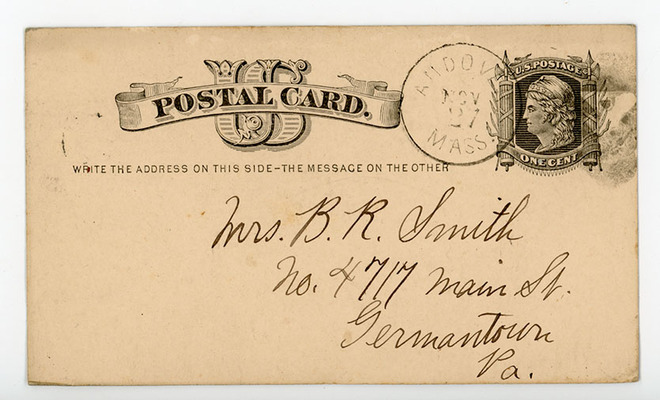 US
POSTAL CARD.
ANDOV
NOV
27
MASS.
U.S. POSTAGE
ONE CENT
WRITE THE ADDRESS ON THIS SIDE-THE MESSAGE ON THE OTHER
Mrs. B. R. Smith
No. 4717 Main St.
Germantown
Pa.